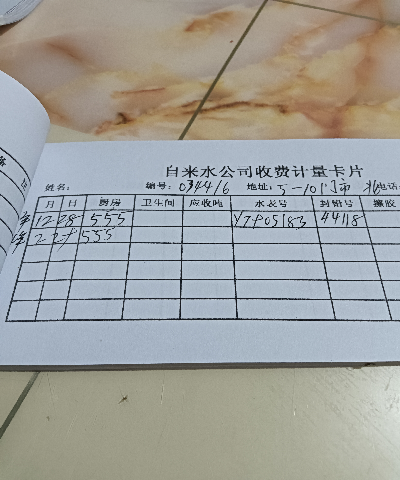 自来水公司收费计量卡片
姓名: 编号: 034416 地址: 5-101 门市 电话
月 日 厨房 卫生间 应收吨 水表号 封铅号
12 28 555 YZP05183 44118
2 555